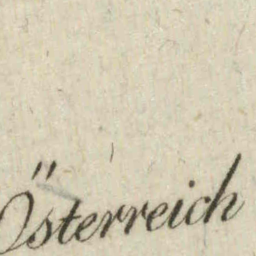 Österreich